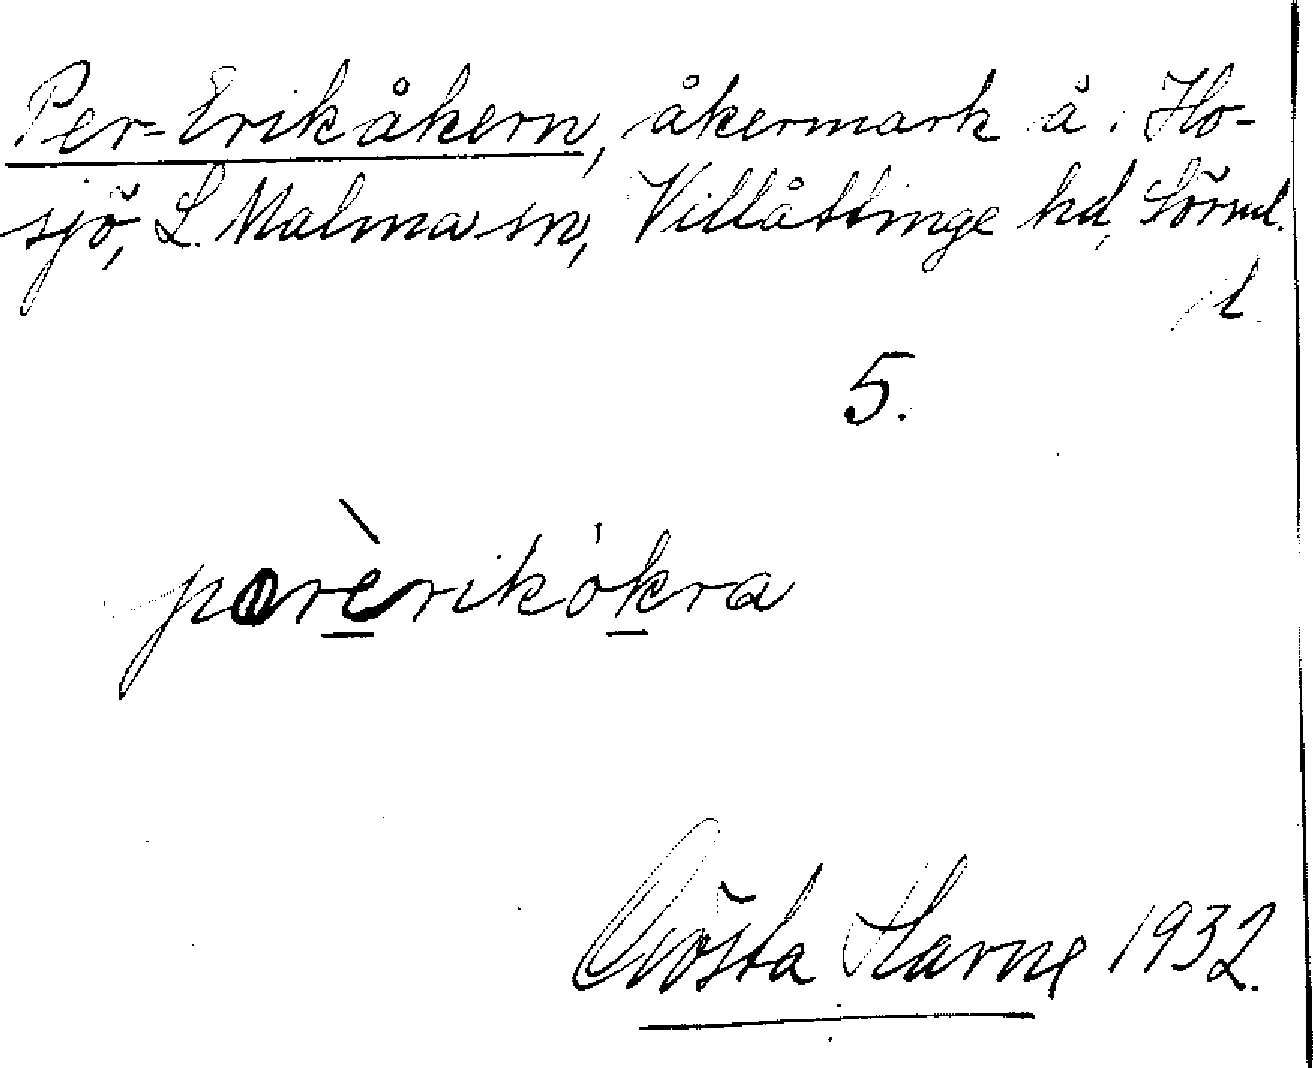 Per-Erikåkern, åkermark å. Ho-
sjö, L. Malma sn, Villåttinge hd, Sörml.
l.
5.
porèrikókra
Gösta Harne 1932.